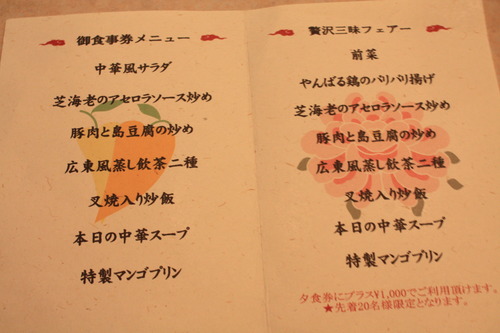 御食事券メニュー
中華風サラダ
芝海老のアセロラソース炒め
豚肉と島豆腐の炒め
広東風蒸し飲茶二種
叉焼入り炒飯
本日の中華スープ
特製マンゴプリン
贅沢三昧フェアー
前菜
やんばる鶏のパリパリ揚げ
芝海老のアセロラソース炒め
豚肉と島豆腐の炒め
広東風蒸し飲茶二種
叉焼入り炒飯
本日の中華スープ
特製マンゴプリン
夕食券にプラス¥1,000でご利用頂けます。
★先着20名様限定となります。